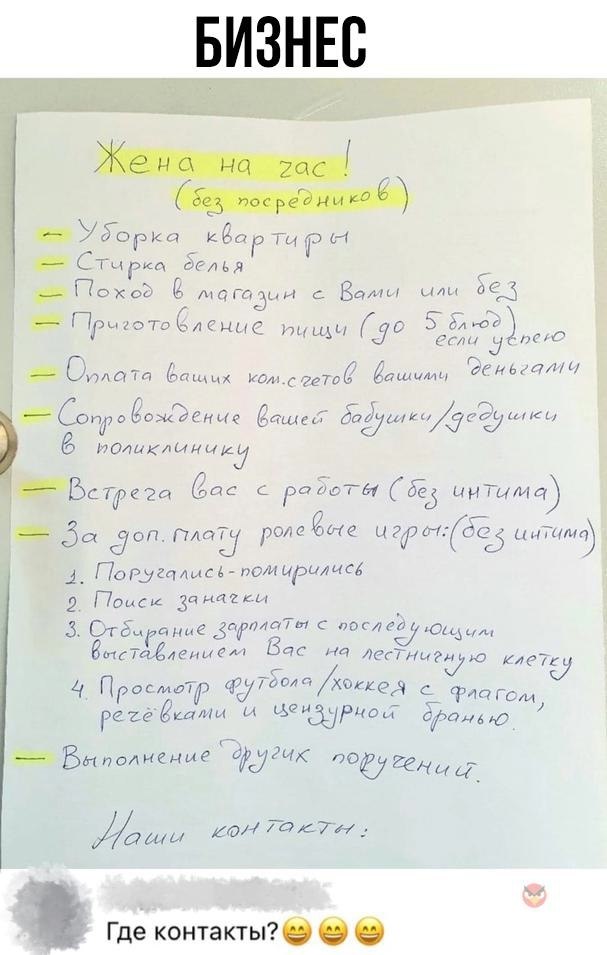 БИЗНЕС
Жена на час!
(без посредников)
— Уборка квартиры
— Стирка белья
— Поход в магазин с Вами или без
— Приготовление пищи (до 5 блюд)
если успею
— Оплата ваших ком.счетов вашими деньгами
— Сопровождение вашей бабушки/дедушки
в поликлинику
— Встреча вас с работы (без интима)
— За доп. плату ролевые игры: (без интима)
1. Поругались-помирились
2. Поиск заначки
3. Отбирание зарплаты с последующим
выставлением Вас на лестничную клетку
4. Просмотр футбола/хоккея с флагом,
речёвками и цензурной бранью.
— Выполнение других поручений.
Наши контакты:
Где контакты?😄😄😄